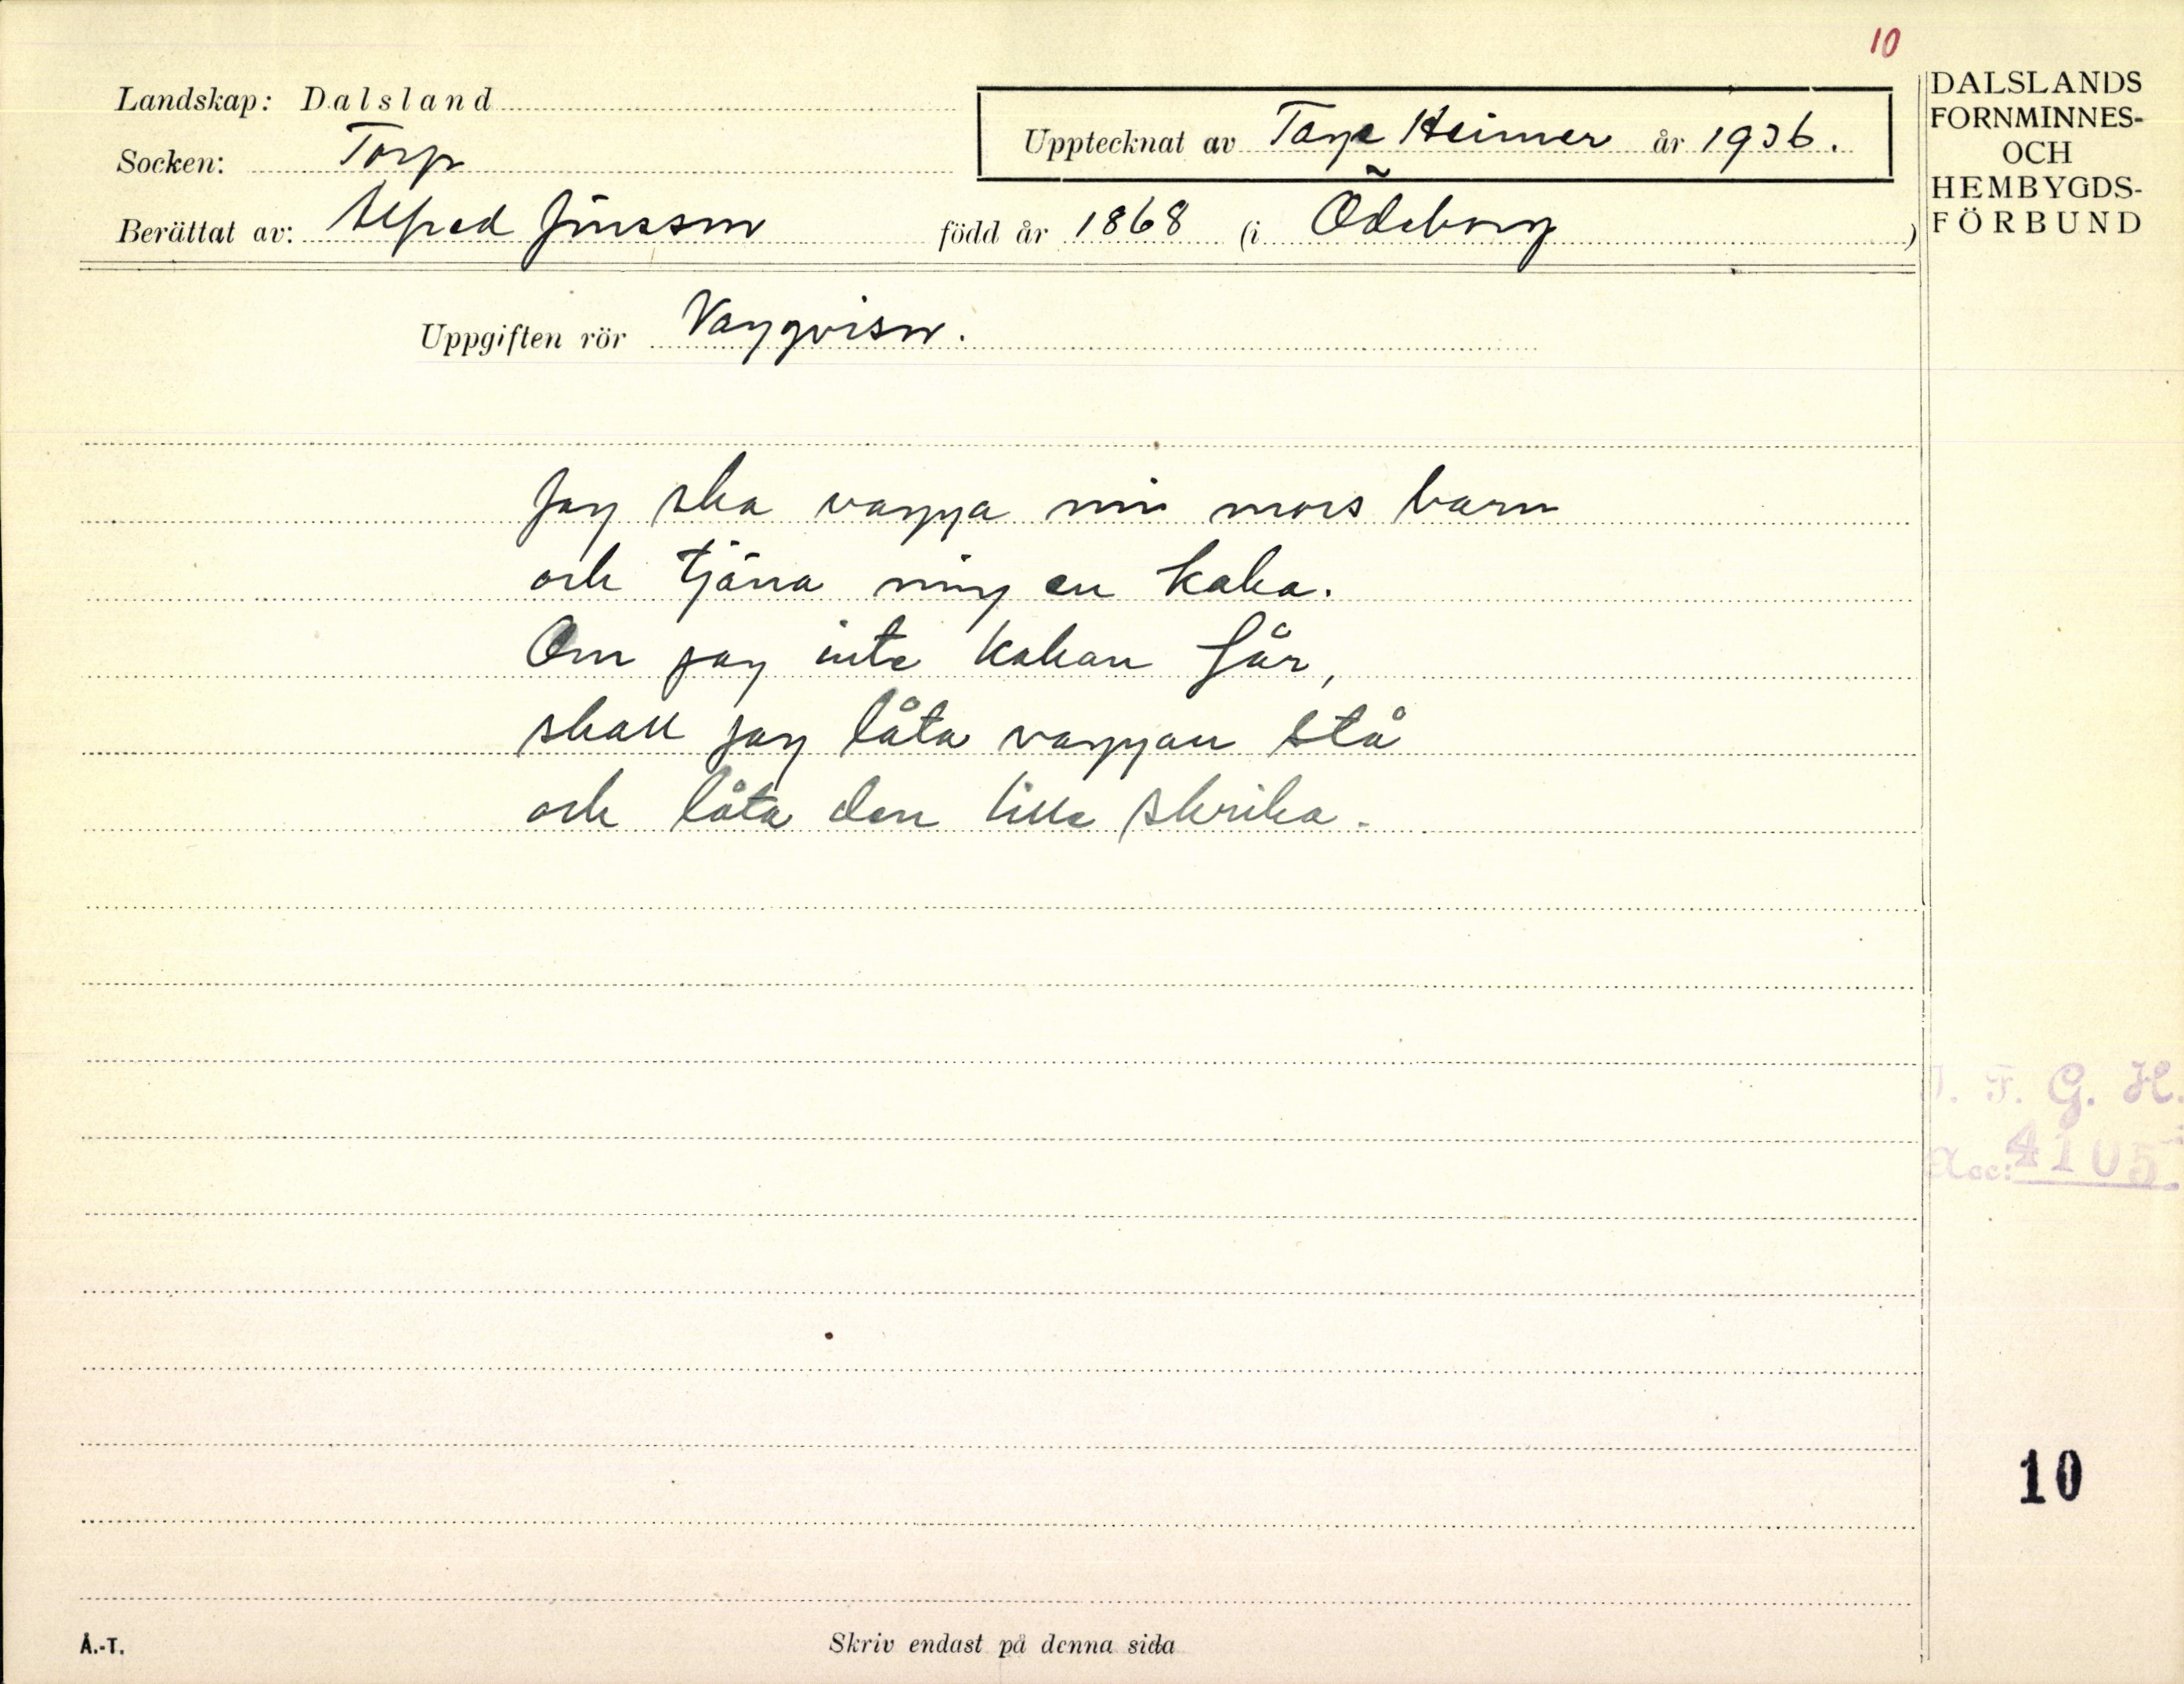 10
Landskap: Dalsland
Upptecknat av Tage Heimer år 1936.
Socken: Torp
Berättat av: Alfred Jonsson född år 1868 (i Ödeborg)
DALSLANDS
FORNMINNES-
OCH
HEMBYGDS-
FÖRBUND
Uppgiften rör Vaggvisor.
Jag ska vagga min mors barn
och tjäna mig en kaka.
Om jag inte kakan får,
skall jag låta vaggan stå
och låta den lille skrika.
I. F. G. H.
Acc: 4105
10
Å.-T.
Skriv endast på denna sida